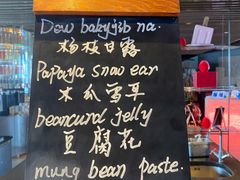 Dew baby yib na.
杨枝甘露
Papaya snow ear
木瓜雪耳
beancurd jelly
豆腐花
mung bean paste.